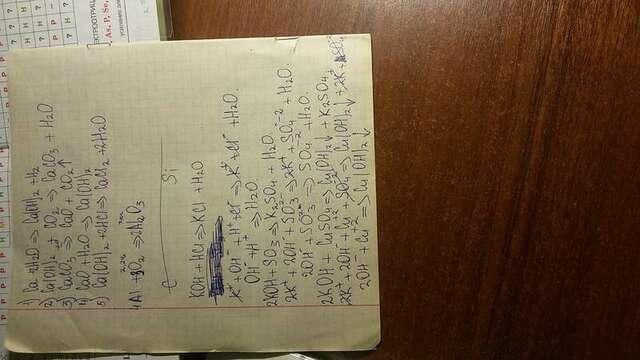 1) Ca + 2H₂O ⇒ Ca(OH)₂ + H₂
2) Ca(OH)₂ + CO₂ ⇒ CaCO₃ + H₂O
3) CaCO₃ ⇒ CaO + CO₂↑
4) CaO + H₂O ⇒ Ca(OH)₂
5) Ca(OH)₂ + 2HCl ⇒ CaCl₂ + 2H₂O
4Al + 3O₂ ⇒ 2Al₂O₃
C Si
KOH + HCl ⇒ KCl + H₂O
K⁺ + OH⁻ + H⁺ + Cl⁻ ⇒ K⁺ + Cl⁻ + H₂O.
OH⁻ + H⁺ ⇒ H₂O.
2KOH + SO₃ ⇒ K₂SO₄ + H₂O.
2K⁺ + 2OH⁻ + SO₃⁻² ⇒ 2K⁺ + SO₄⁻² + H₂O.
2OH⁻ + SO₃⁻² ⇒ SO₄⁻² + H₂O.
2KOH + CuSO₄ ⇒ Cu(OH)₂↓ + K₂SO₄
2K⁺ + 2OH⁻ + Cu⁺² + SO₄⁻² ⇒ Cu(OH)₂↓ + 2K⁺ + SO₄⁻²
2OH⁻ + Cu⁺² ⇒ Cu(OH)₂↓
As, P, Se,